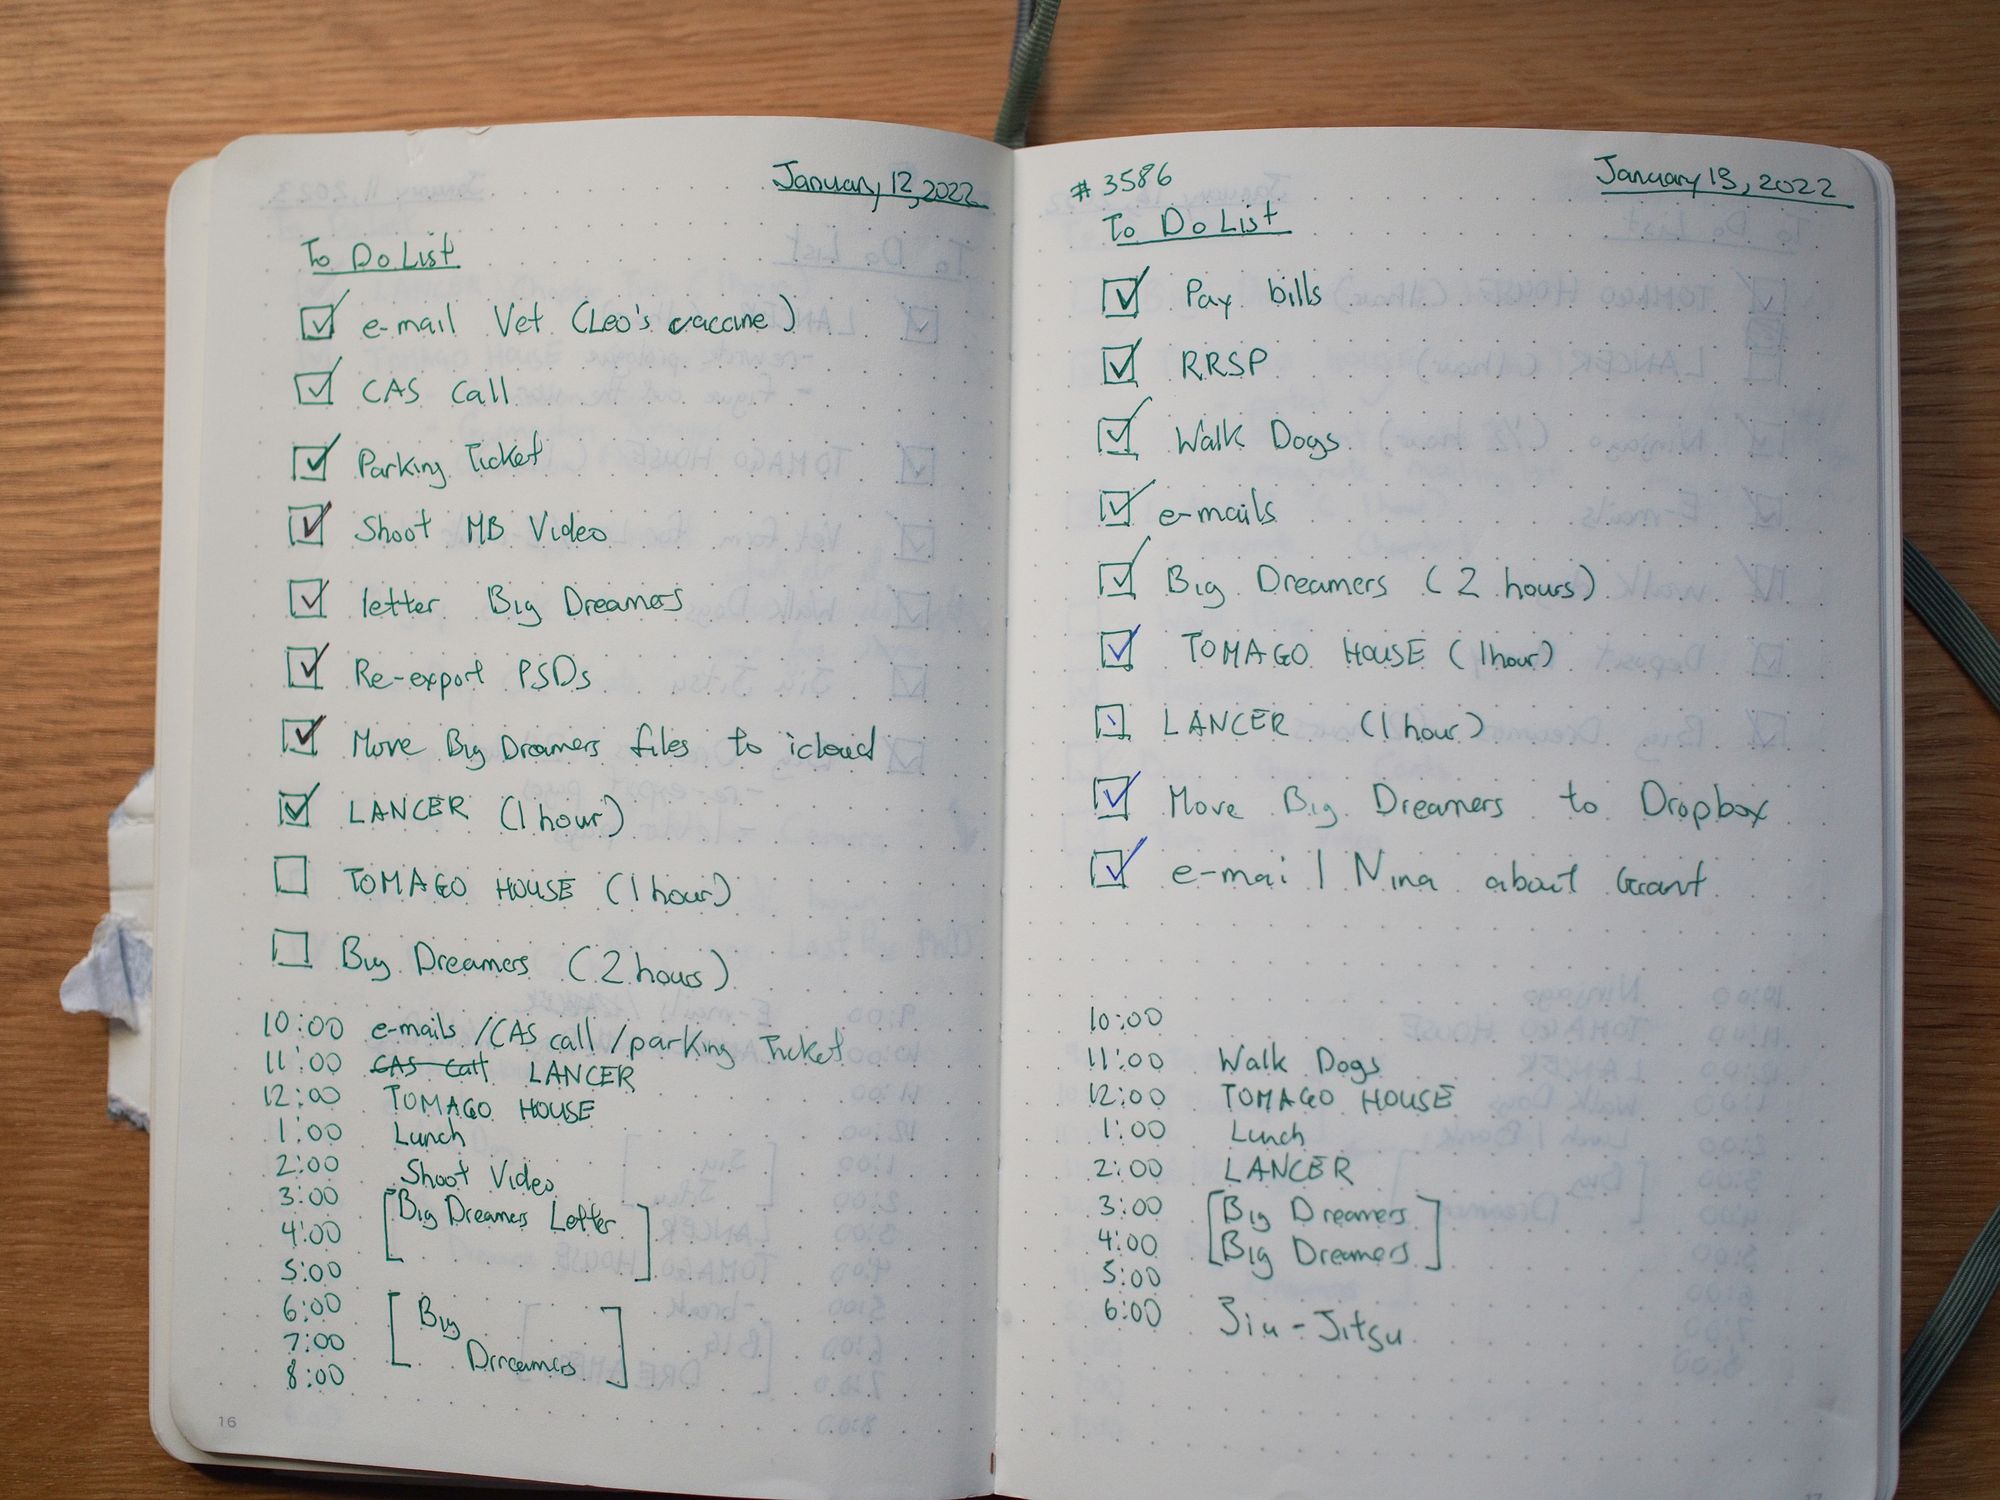 January, 12, 2022
To Do List
e-mail Vet (Leo's vaccine)
CAS Call
Parking Ticket
Shoot MB Video
letter Big Dreamers
Re-export PSDs
Move Big Dreamers files to icloud
LANCER (1 hour)
TOMAGO HOUSE (1 hour)
Big Dreamers (2 hours)
10:00 e-mails /CAS call /parking Ticket
11:00 CAS Call LANCER
12:00 TOMAGO HOUSE
1:00 Lunch
2:00 Shoot Video
3:00 Big Dreamers Letter
4:00
5:00
6:00 Big
7:00 Drreamers
8:00
16
# 3586
January 13, 2022
To Do List
Pay bills
RRSP
Walk Dogs
e-mails
Big Dreamers (2 hours)
TOMAGO HOUSE (1 hour)
LANCER (1 hour)
Move Big Dreamers to Dropbox
e-mail Nina about Grant
10:00
11:00 Walk Dogs
12:00 TOMAGO HOUSE
1:00 Lunch
2:00 LANCER
3:00 Big Dreamers
4:00 Big Dreamers
5:00
6:00 Jiu-Jitsu